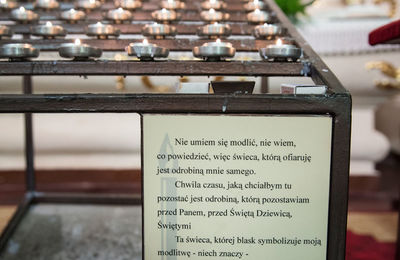 Nie umiem się modlić, nie wiem,
co powiedzieć, więc świeca, którą ofiaruję
jest odrobiną mnie samego.
Chwila czasu, jaką chciałbym tu
pozostać jest odrobiną, którą pozostawiam
przed Panem, przed Świętą Dziewicą,
Świętymi
Ta świeca, której blask symbolizuje moją
modlitwę - niech znaczy -